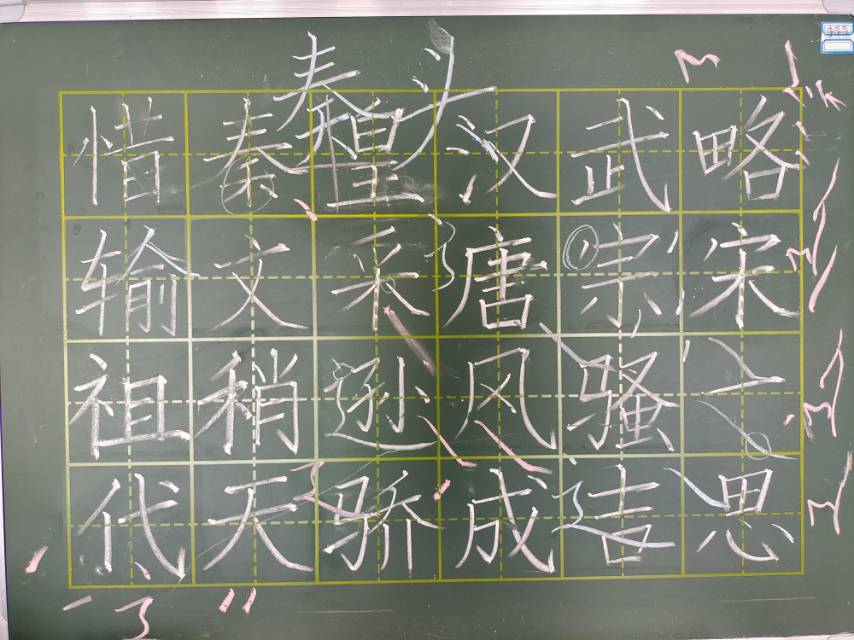 惜秦皇汉武略
输文采唐宗宋
祖稍逊风骚
代天骄成吉思